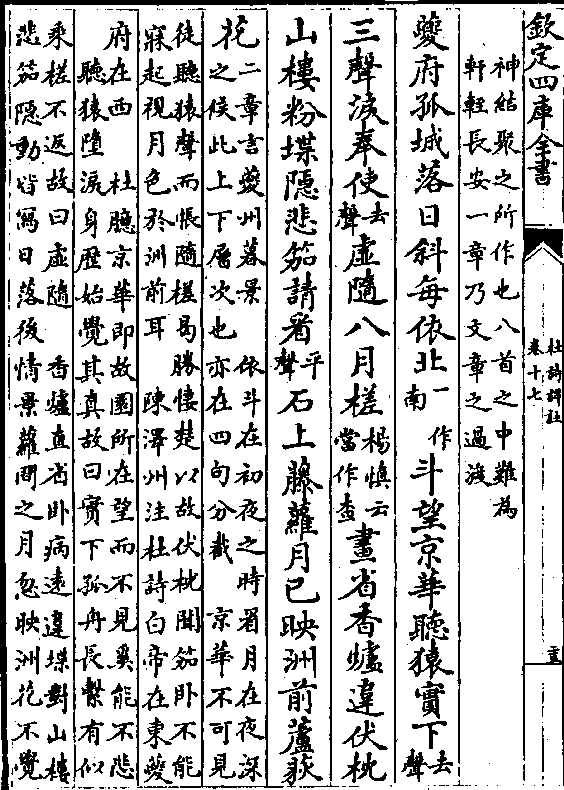 欽定四庫全書
杜詩詳註
卷十七
神結聚之所作也八首之中難為
軒輊長安一章乃文章之過渡
夔府孤城落日斜每依北一作南斗望京華聽猿實下去聲
三聲淚奉使去聲虛隨八月槎楊慎云當作查畫省香爐違伏枕
山樓粉堞隱悲笳請看平聲石上藤蘿月已映洲前蘆荻
花二章言夔州暮景依斗在初夜之時看月在夜深
之候此上下層次也亦在四句分截 京華不可見
徒聽猿聲而悵隨槎曷勝悽楚以故伏枕聞笳卧不能
寐起視月色於洲前耳 陳澤州注杜詩白帝在東夔
府在西 杜聽京華即故園所在望而不見奚能不悲
聽猿墮淚身歷始覺其真故曰實下孤舟長繫有似
乘槎不返故曰虛隨 香爐直省卧病遠違堞對山樓
悲笳隱動皆寫日落後情景蘿間之月忽映洲花不覺